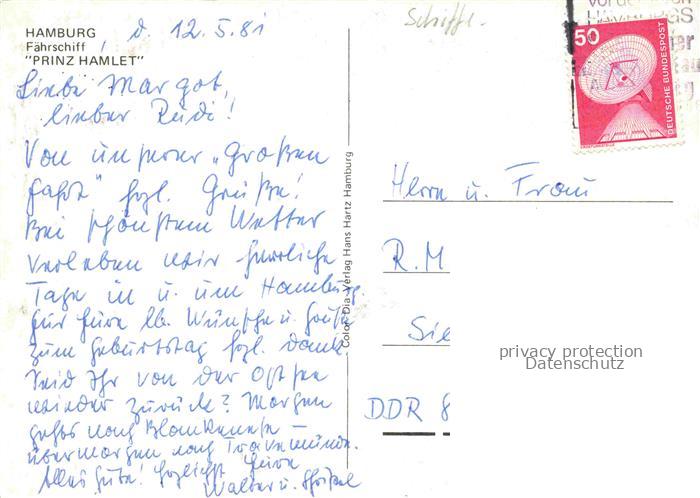 HAMBURG
Fährschiff
"PRINZ HAMLET"
d. 12.5.81
Schiffe.
Liebe Margot,
lieber Rudi!
Von unserer „Großen
Fahrt" hzl. Grüße!
Bei schönstem Wetter
verleben wir herrliche
Tage in u. um Hamburg.
Für Eure lb. Wünsche u. Grüße
zum Geburtstag hzl. Dank.
Seid Ihr von der Ostsee
wieder zurück? Morgen
gehts nach Blankenese –
übermorgen nach Travemünde.
Alles Gute! Herzlichst Eure
Walter u.
Color Dia Verlag Hans Hartz Hamburg
50
DEUTSCHE BUNDESPOST
Herrn u. Frau
R. M
Sie
privacy protection
Datenschutz
DDR 8